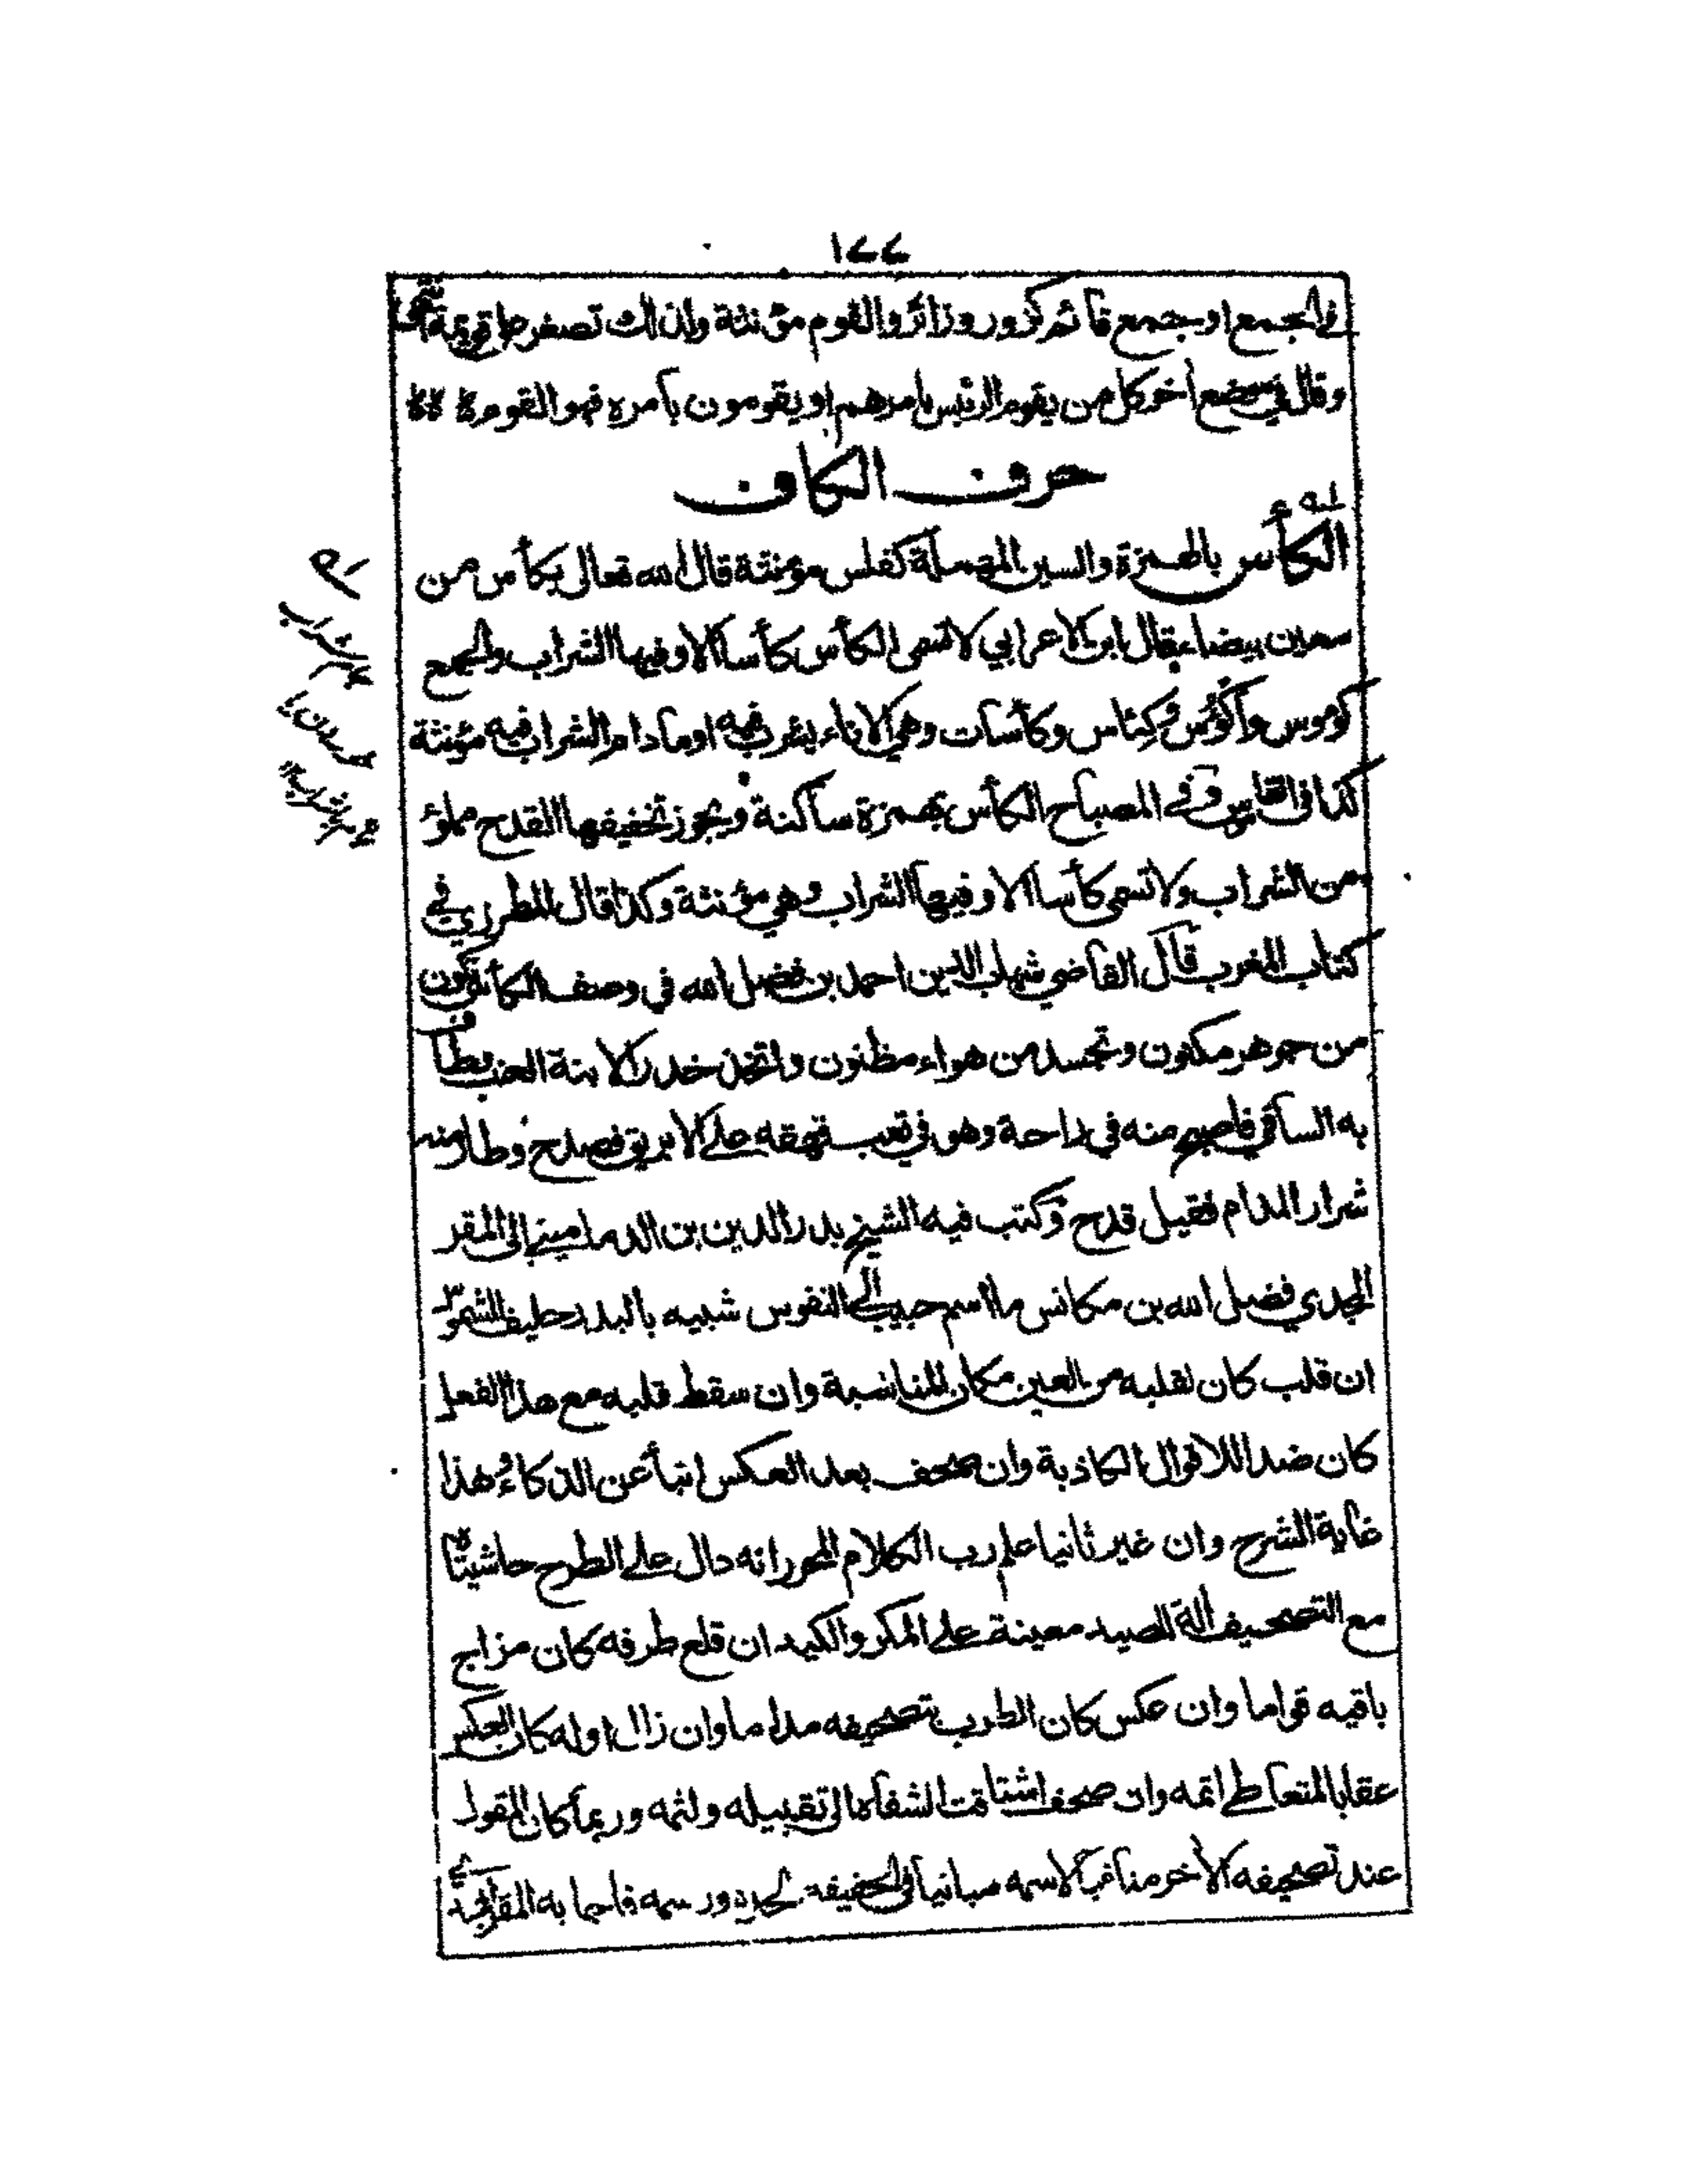 ١٧٧
في الجمع او جمع قائم كزور وزائر والقوم مؤنثة ولذلك تصغر على قويمة انتهى
وقال في موضع اخر كل من يقوم الرئيس بامرهم او يقومون بأمره فهو القوم
حرف الكاف
الكأس بالهمزة والسين المهملة كفلس مؤنثة قال الله تعالى بكأس من
معين بيضاء قال ابن الاعرابي لا تسمى الكأس كأسا الا وفيها الشراب والجمع
كووس وأكؤس وكئاس وكأسات وهي الاناء يشرب فيه او ما دام الشراب فيه مؤنثة
كذا في القاموس وفي المصباح الكأس بهمزة ساكنة ويجوز تخفيفها القدح مملؤ
من الشراب ولا تسمى كأسا الا وفيها الشراب وهي مؤنثة وكذا قال المطرزي في
كتاب المغرب قال القاضي شهاب الدين احمد بن فضل الله في وصف الكأس تكون
من جوهر مكنون وتجسد من هواء مظنون واتخذ خدرا لابنة العنب وطاف
به الساقي فاصبح منه في راحة وهو في تعب قهقه على الابريق فصدح وطار منه
شرار المدام فقيل قدح وكتب فيه الشيخ بدر الدين بن الدماميني الى المقر
المجدي فضل الله بن مكانس ما اسم حبيب الى النفوس شبيه بالبدر حليف الشموس
ان قلب كان لقلبه من العين مكان المناسبة وان سقط قلبه مع هذا الفعل
كان ضدا للاقوال الكاذبة وان صحف بعد العكس انبأ عن الذكاء وهذا
غاية الشرح وان غير ثانيا علم رب الكلام المحرر انه دال على الطرح حاشيتاه
مع التصحيف الة للصيد معينة على المكر والكيد ان قلع طرفه كان مزاج
باقيه قواما وان عكس كان الطرب بتصحيفه مداما وان زال اوله كان بالعكس
عقابا لمتعاطي اثمه وان صحف اشتاقت الشفاه الى تقبيله ولثمه وربما كان المقول
عند تصحيفه الآخر منافيا لاسمه مباينا في الحقيقة لحده ورسمه فاجابه المقر المجدي